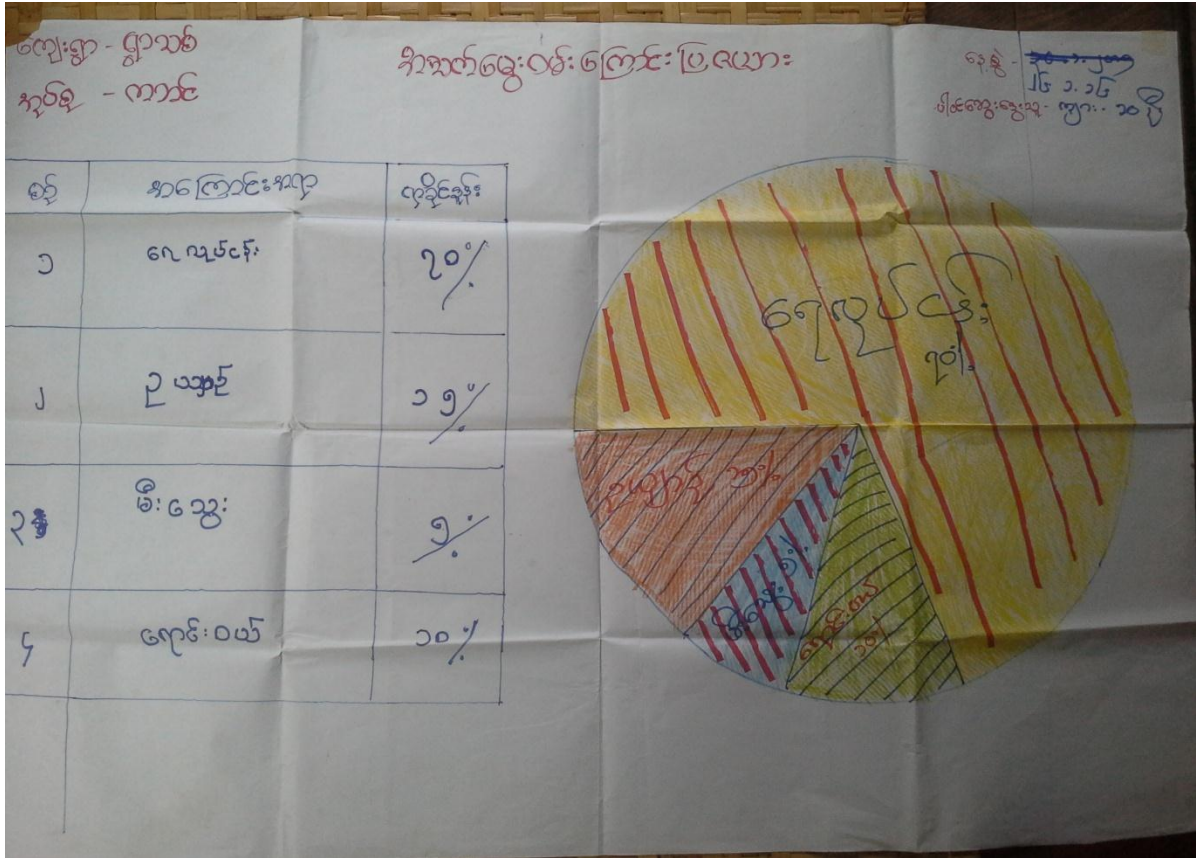 ကျေးရွာ - ရွာသစ်
အုပ်စု - ကဘင်
အသက်မွေးဝမ်းကြောင်းပြဇယား
နေ့စွဲ -
၂၆ ၁. ၁၆
ပါဝင်ဆွေးနွေးသူ - ကျား - ၁၀ ဦး
စဉ် အကြောင်းအရာ ရာခိုင်နှုန်း
၁ ရေလုပ်ငန်း ၇၀%
၂ ဥယျာဉ် ၁၅%
၃ မီးသွေး ၅%
၄ ရောင်းဝယ် ၁၀%
ရေလုပ်ငန်း
၇၀%
ဥယျာဉ် ၁၅%
မီးသွေး ၅%
ရောင်းဝယ်
၁၀%